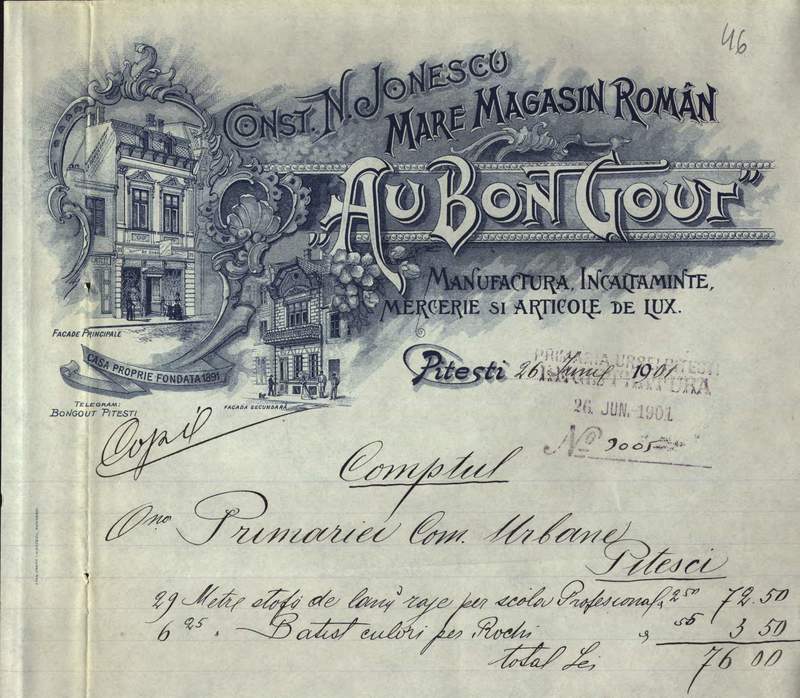 46
CONST. N. JONESCU
MARE MAGASIN ROMÂN
„AU BON GOUT"
MANUFACTURA, INCALTAMINTE,
MERCERIE SI ARTICOLE DE LUX.
FACADE PRINCIPALE
CASA PROPRIE FONDATA 1891
TELEGRAM:
BONGOUT PITESTI
FACADA SECUNDARĂ
Pitesti 26 Junie 1901
PRIMARIA URBEI PITESTI
26 JUN. 1901
No 9005
Copil
Comptul
Ono Primariei Com. Urbane
Pitesci
29 Metre stofă de lană roje per scola Profesională 2 50 72.50
6 25 " Batist culori per Rochi " 56 3 50
total Lei 76 00